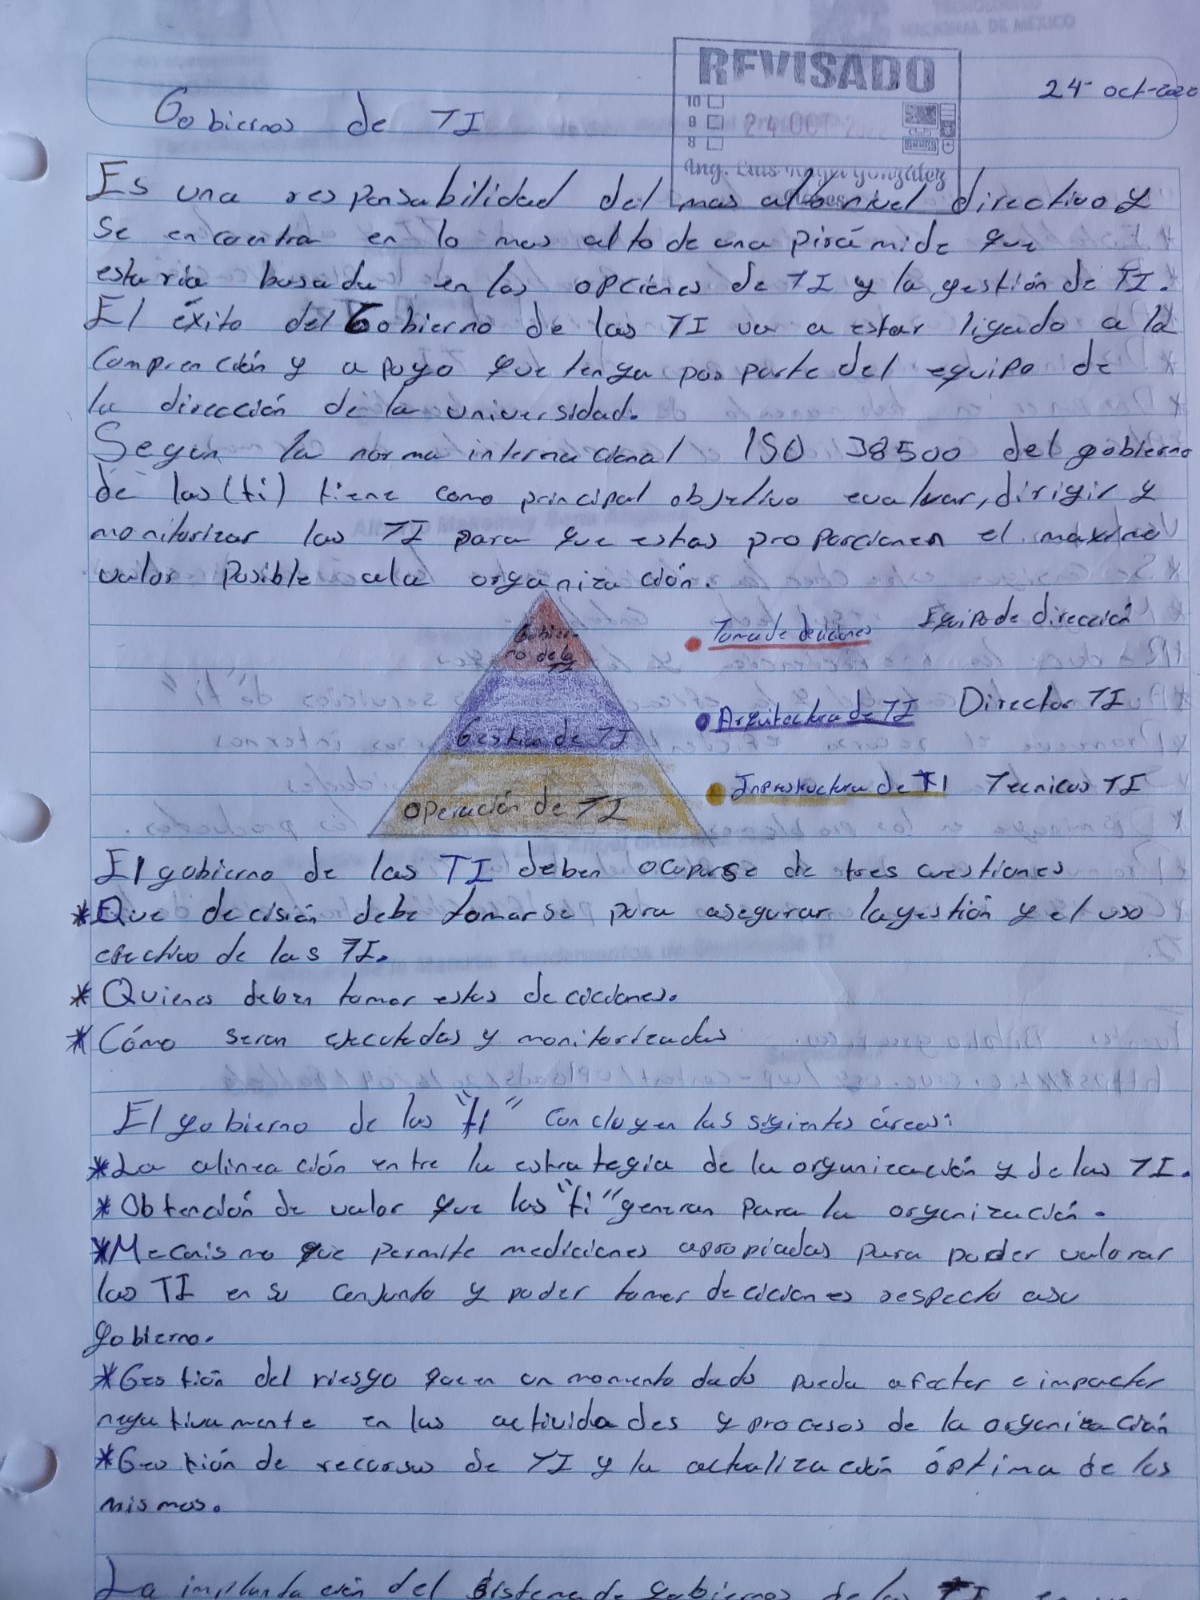 REVISADO
10
9
8
24 OCT
Ing. Luis González
24-oct-2022
Gobiernos de TI
Es una responsabilidad del mas alto nivel directivo y
Se encuentra en lo mas alto de una pirámide que
estaría basada en las opciones de TI y la gestión de TI.
El éxito del Gobierno de las TI va a estar ligado a la
Comprención y apoyo que tenga por parte del equipo de
la dirección de la universidad.
Según la norma internacional ISO 38500 del gobierno
de las (ti) tiene como principal objetivo evaluar, dirigir y
monitorizar las TI para que estas proporcionen el maximo
valor posible a la organización.
Gobier-
no de la
TI
Toma de deciciones Equipo de dirección
Gestion de TI
Arquitectura de TI Director TI
Operación de TI
Infrestructura de TI Tecnicos TI
El gobierno de las TI deben ocuparse de tres cuestiones
*Que decisión debe tomarse para asegurar la gestión y el uso
efectivo de las TI.
*Quienes deben tomar estas deciciones.
*Cómo seran ejecutadas y monitorizadas
El gobierno de las "ti" concluyen las sigientes áreas:
*La alineación entre la estrategia de la organización y de las TI.
*Obtención de valor que las "ti" generan para la organización.
*Mecanismo que permite mediciones apropiadas para poder valorar
las TI en su conjunto y poder tomar deciciones respecto a su
gobierno.
*Gestión del riesgo que en un momento dado pueda afectar e impactar
negativamente en las actividades y procesos de la organización
*Gestión de recursos de TI y la actualización óptima de los
mismos.
La implantación del sistema de gobiernos de las TI